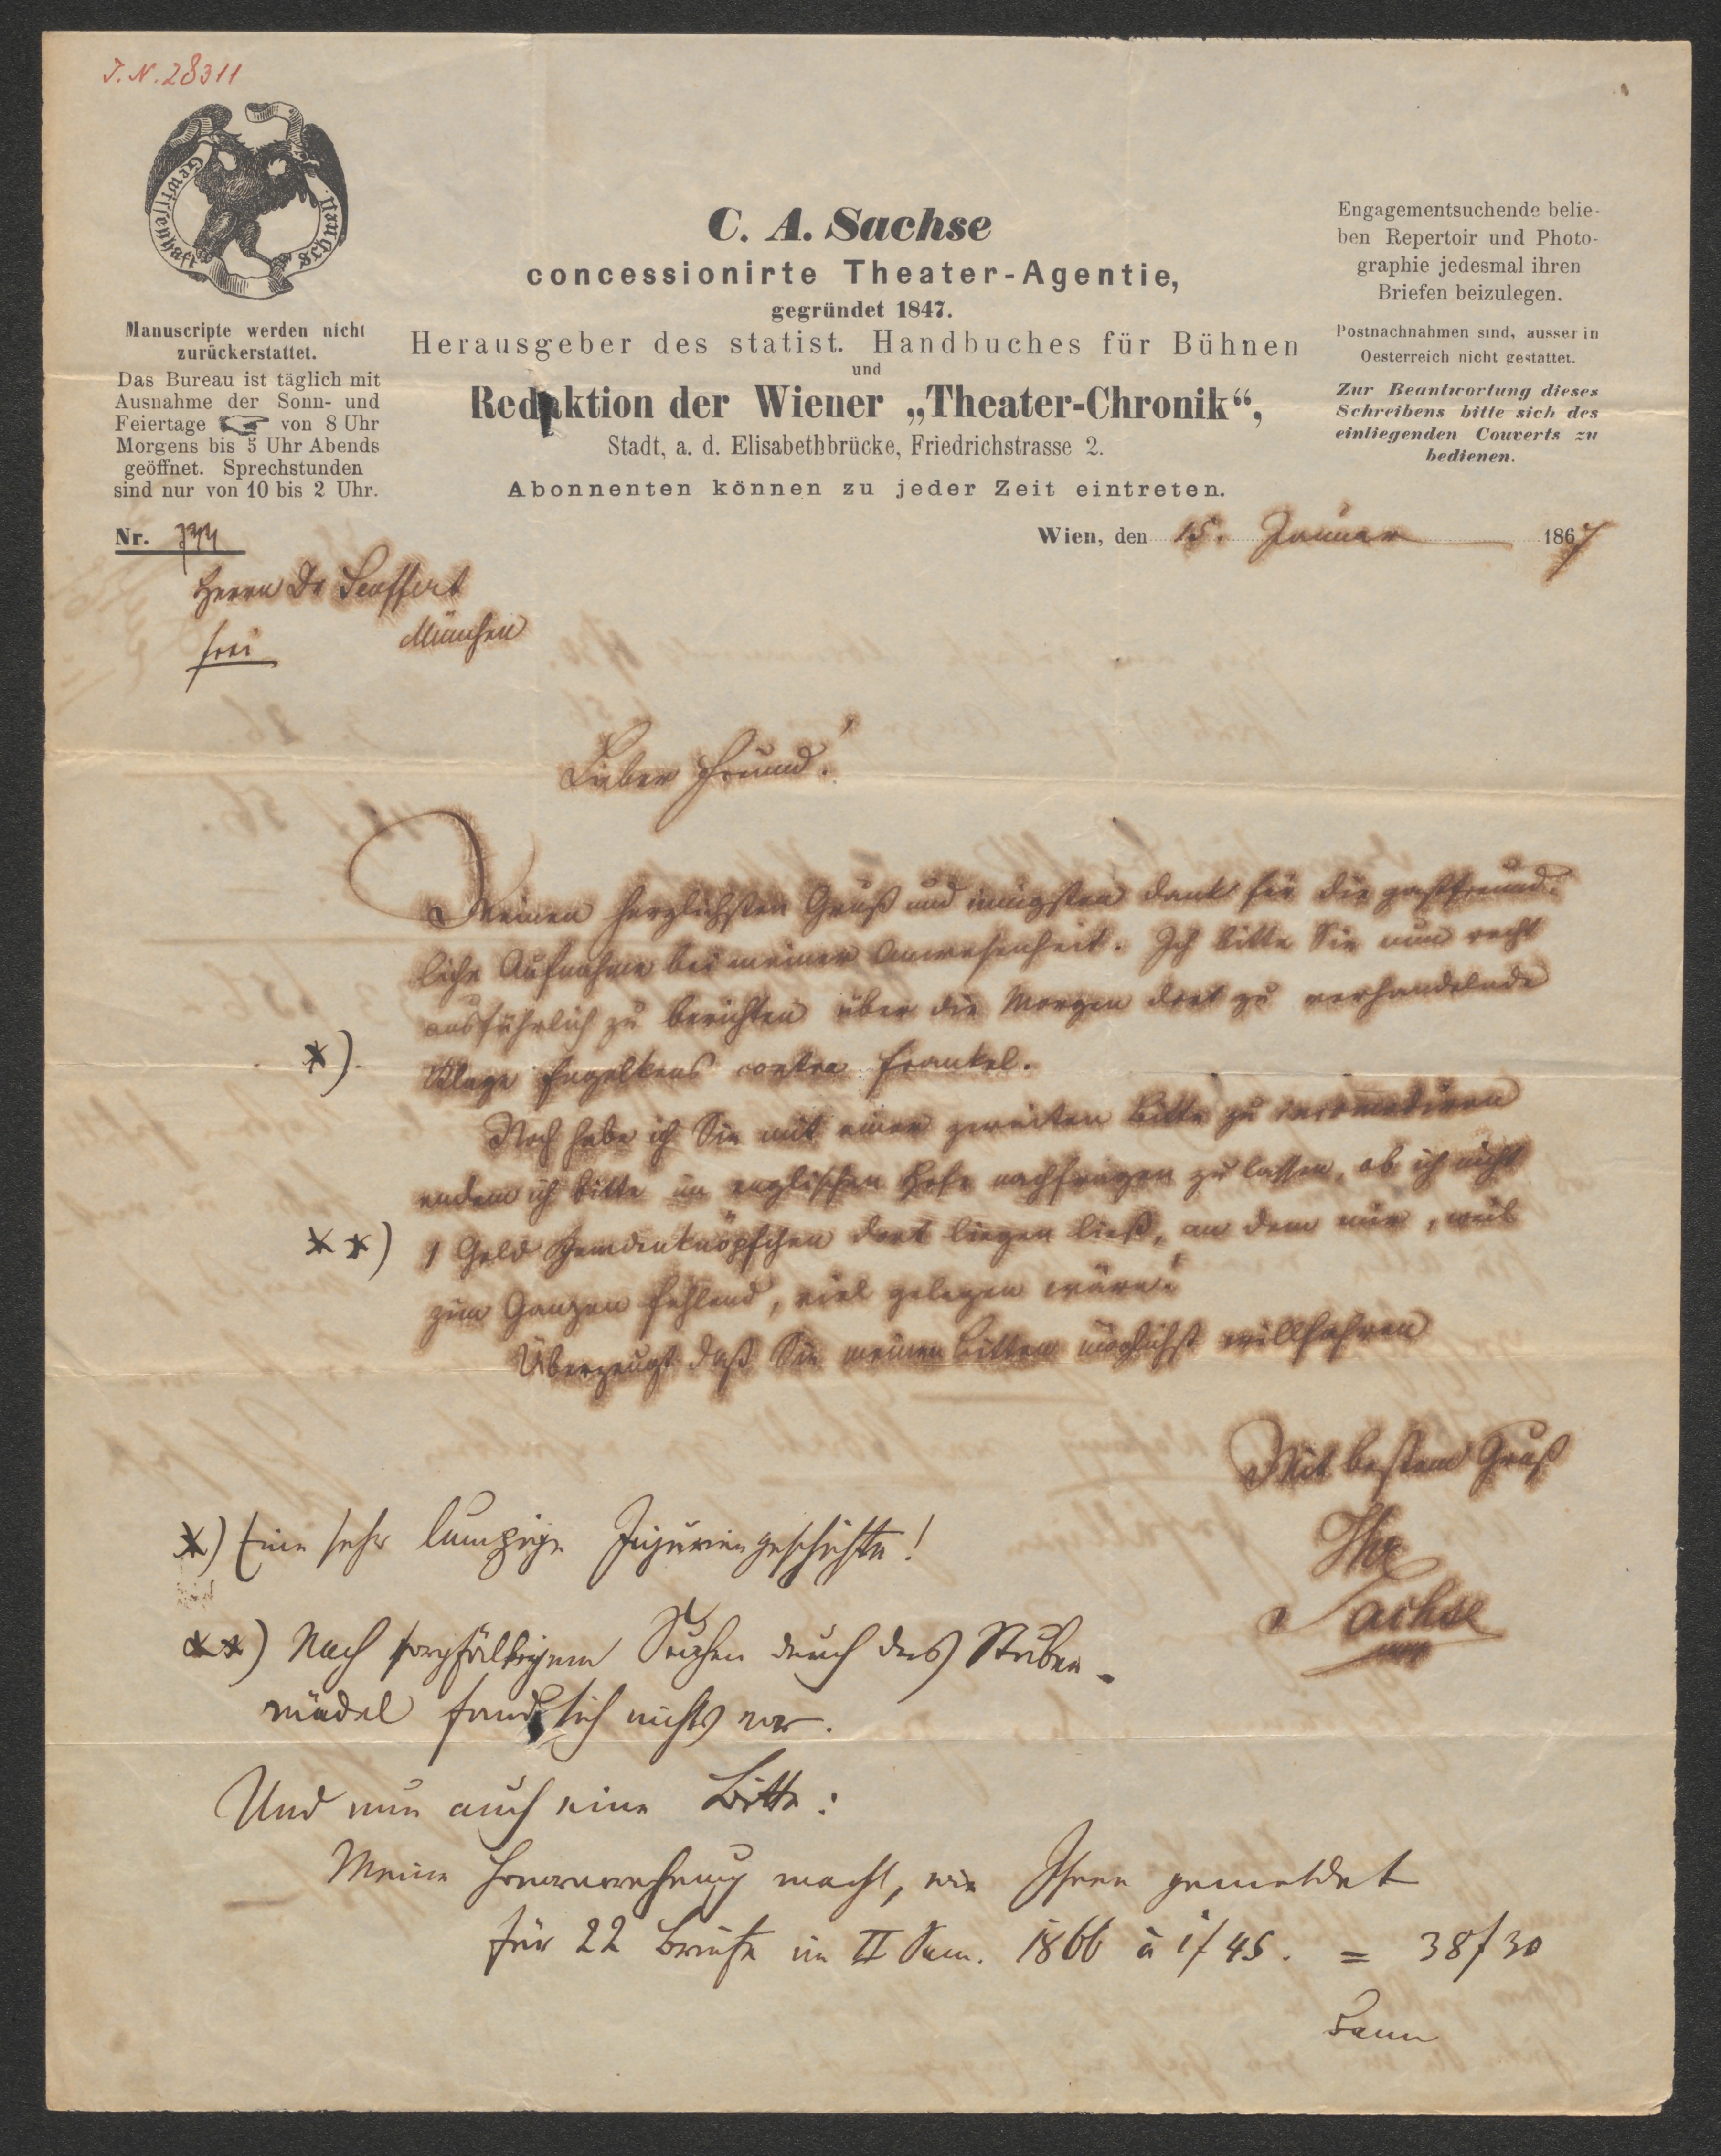 J.N. 28311
Gewissenhaft
schnell.
Manuscripte werden nicht
zurückerstattet.
Das Bureau ist täglich mit
Ausnahme der Sonn- und
Feiertage von 8 Uhr
Morgens bis 5 Uhr Abends
geöffnet. Sprechstunden
sind nur von 10 bis 2 Uhr.
C. A. Sachse
concessionirte Theater-Agentie,
gegründet 1847.
Herausgeber des statist. Handbuches für Bühnen
und
Redaktion der Wiener „Theater-Chronik“,
Stadt, a. d. Elisabethbrücke, Friedrichstrasse 2.
Abonnenten können zu jeder Zeit eintreten.
Engagementsuchende belie-
ben Repertoir und Photo-
graphie jedesmal ihren
Briefen beizulegen.
Postnachnahmen sind, ausser in
Oesterreich nicht gestattet.
Zur Beantwortung dieses
Schreibens bitte sich des
einliegenden Couverts zu
bedienen.
Nr.
Wien, den 15. Januar 1867
Herrn Dr Seuffert
frei München
Lieber Freund!
Meinen herzlichsten Gruß und innigsten Dank für die gastfreund-
liche Aufnahme bei meiner Anwesenheit. Ich bitte Sie nun recht
ausführlich zu berichten über die Morgen dort zu verhandelnde
*) Klage Engelkens contra Frankel.
Noch habe ich Sie mit einer zweiten Bitte zu
indem ich bitte im englischen Hofe nachfragen zu lassen, ob ich nicht
**) 1 Gold Hemdenknöpfchen dort liegen ließ, an dem mir, weil
zum Ganzen fehlend, viel gelegen wäre.
Überzeugt daß Sie meinen Bitten möglichst willfahren
Mit bestem Gruß
Ihr
Sachse
*) Eine sehr lumpige Injuriengeschichte!
**) Nach sorgfältigem Suchen durch das Stuben-
mädel fand sich nichts vor.
Und nun auch eine Bitte:
Meine macht, wie Ihnen gemeldet
für 22 Briefe im II Sem. 1866 à 1f 45. = 38f 30